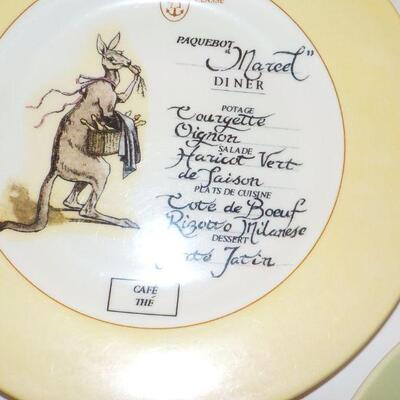 CLASSE
PAQUEBOT "Marcel"
DINER
POTAGE
Courgette
Oignon
SALADE
Haricot Vert
de Saison
PLATS DE CUISINE
Coté de Boeuf
Rizotto Milanese
DESSERT
Tatin
CAFÉ
THÉ